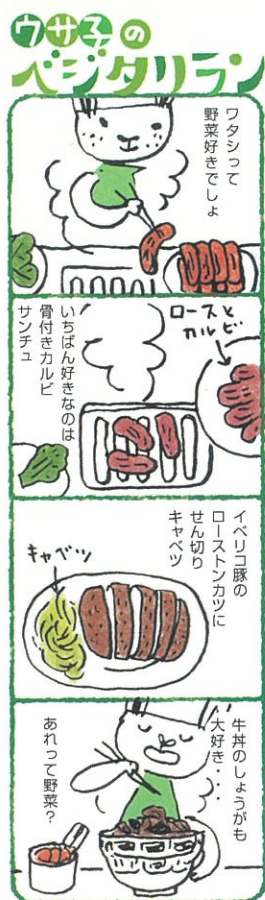 ウサ子の
ベジタリラン
ワタシって
野菜好きでしょ
ロースと
カルビ
いちばん好きなのは
骨付きカルビ
サンチュ
イベリコ豚の
ローストンカツに
せん切り
キャベツ
キャベツ
牛丼のしょうがも
大好き・・・
あれって野菜？